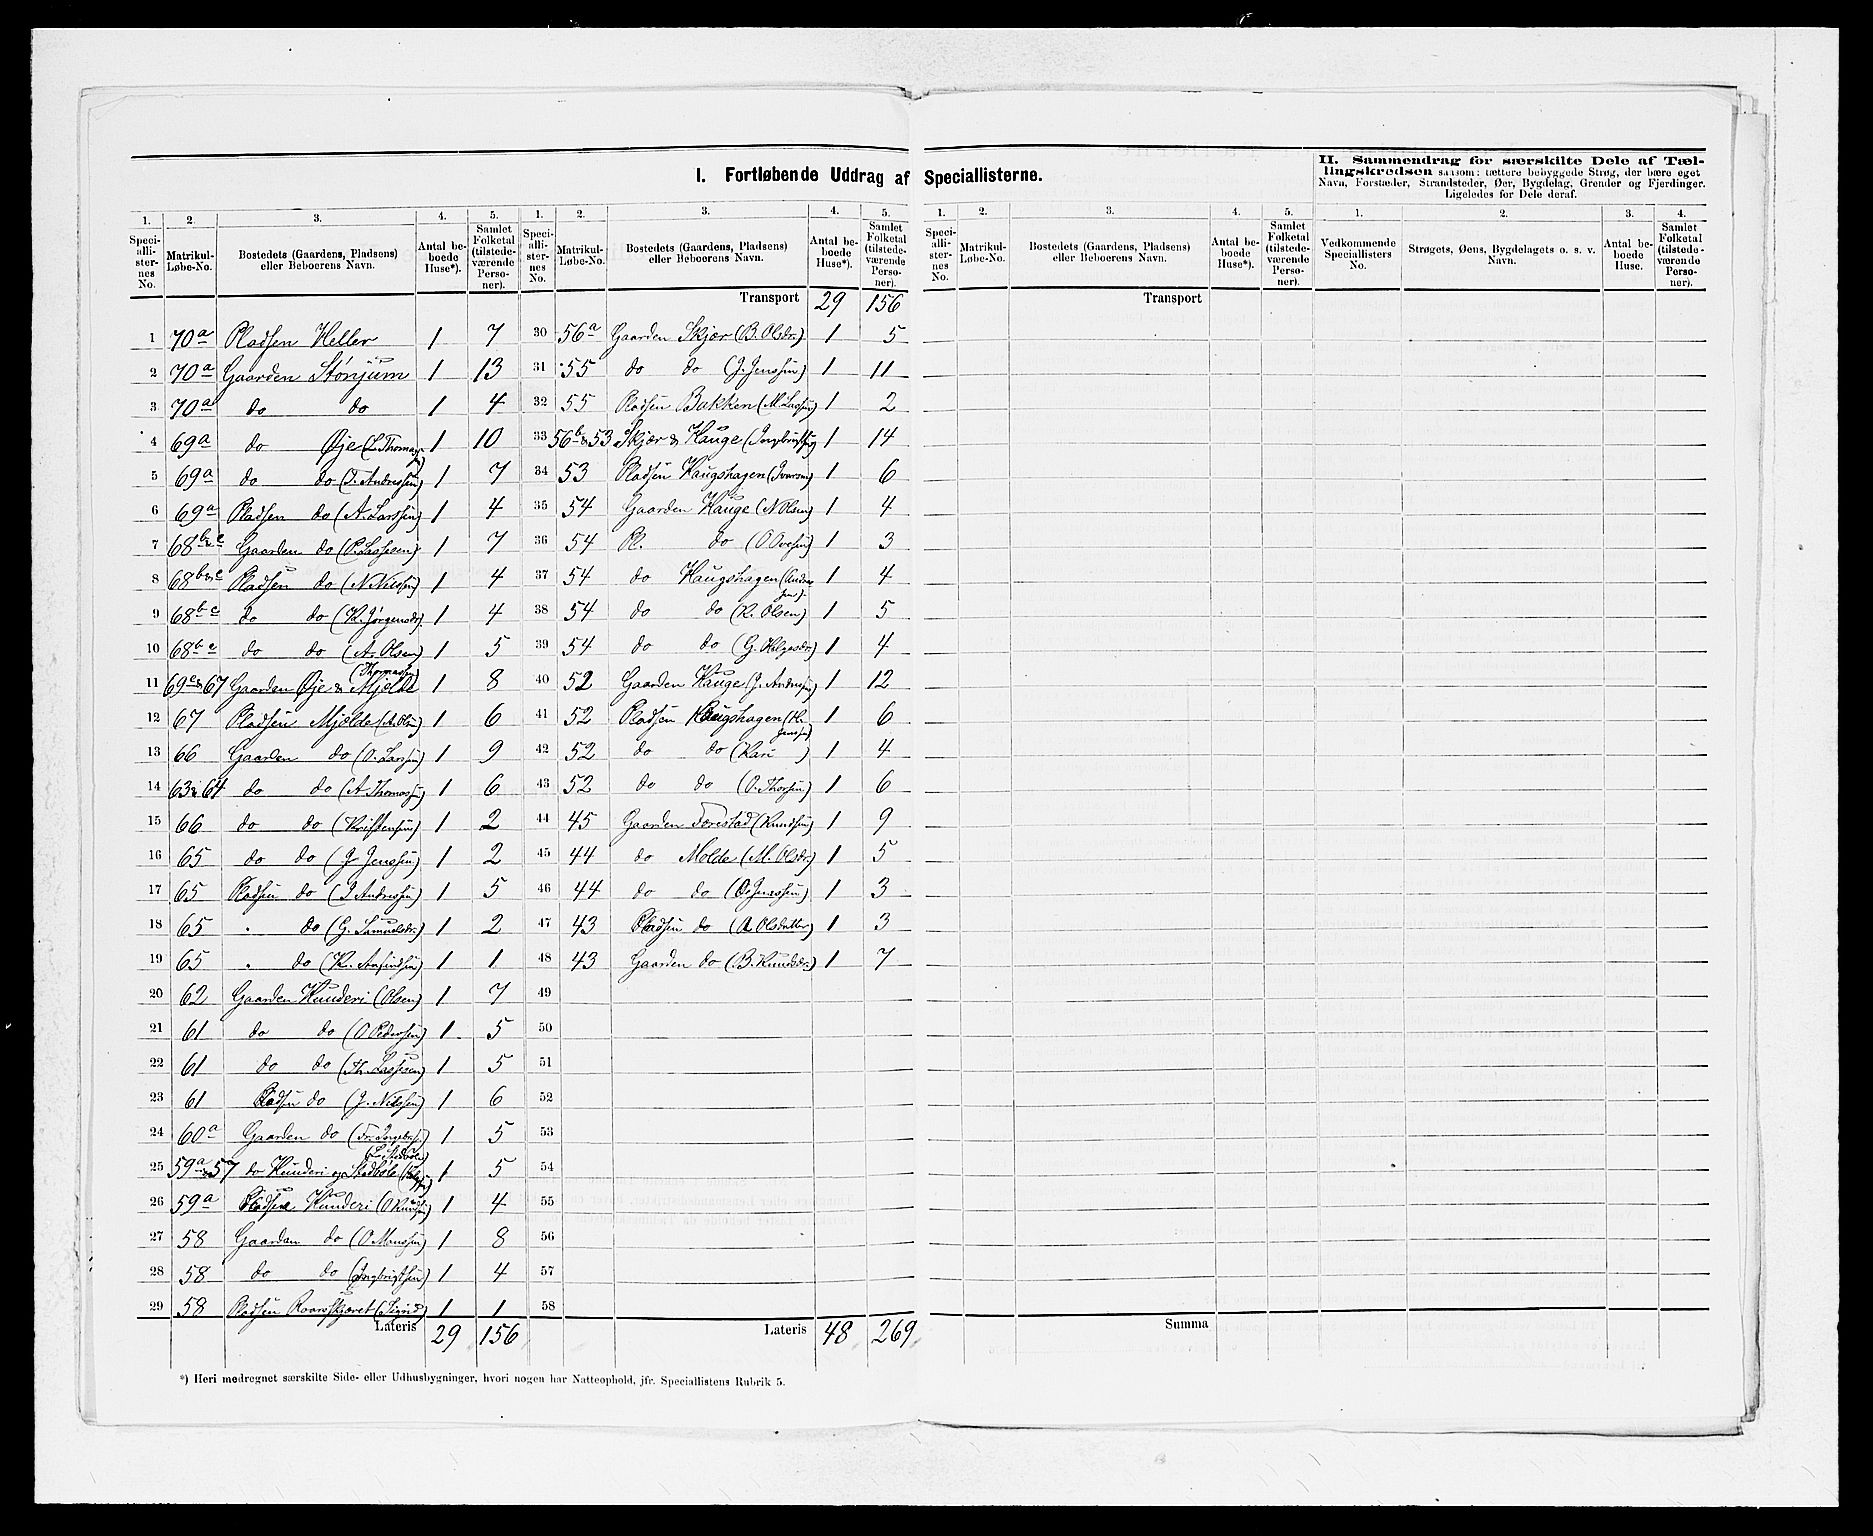 I. Fortløbende Uddrag af Speciallisterne.
II. Sammendrag for særskilte Dele af Tællingskredsen saasom: tættere bebyggede Strøg, der bære eget Navn, Forstæder, Strandsteder, Øer, Bygdelag, Grender og Fjerdinger. Ligeledes for Dele deraf.
1. 2. 3. 4. 5. 1. 2. 3. 4. 5. 1. 2. 3. 4. 5. 1. 2. 3. 4.
Speciallisternes No. Matrikul-Løbe-No. Bostedets (Gaardens, Pladsens) eller Beboerens Navn. Antal beboede Huse*). Samlet Folketal (tilstedeværende Personer).
Speciallisternes No. Matrikul-Løbe-No. Bostedets (Gaardens, Pladsens) eller Beboerens Navn. Antal beboede Huse*). Samlet Folketal (tilstedeværende Personer).
Speciallisternes No. Matrikul-Løbe-No. Bostedets (Gaardens, Pladsens) eller Beboerens Navn. Antal beboede Huse*). Samlet Folketal (tilstedeværende Personer).
Vedkommende Speciallisters No. Strøgets, Øens, Bygdelagets o. s. v. Navn. Antal beboede Huse. Samlet Folketal (tilstedeværende Personer).
1 70a Pladsen Heller 1 7
2 70a Gaarden Stønjum 1 13
3 70a do do 1 4
4 69a do Øje (L Thomassen) 1 10
5 69a do do (T. Andressen) 1 7
6 69a Pladsen do (A. Larssen) 1 4
7 68b&c Gaarden do (P. Lassesen) 1 7
8 68b&c Pladsen do (N Nilssen) 1 4
9 68b c do do (K. Jørgensdr). 1 4
10 68b c do do (A. Olsen) 1 5
11 69c&67 Gaarden Øje & Mjelde (Thomassen) 1 8
12 67 Pladsen Mjelde (A. Olsen) 1 6
13 66 Gaarden do (O. Larssen) 1 9
14 63&64 do do (A Thomassen) 1 6
15 66 do do (Kristensen) 1 2
16 65 do do (J Jenssen) 1 2
17 65 Pladsen do (J Andressen) 1 5
18 65 " do (G. Samuelsdr.) 1 2
19 65 " do (K. Aasindsen) 1 1
20 62 Gaarden Hunderi (Olsen) 1 7
21 61 do do (O Pedersen) 1 5
22 61 do do (Th. Lassesen) 1 5
23 61 Pladsen do (J. Nilssen) 1 6
24 60a Gaarden do 1 5
25 59a&57 do Hunderi og Stedbøle 1 5
26 59a Pladsen Hunderi (O Knudsen) 1 4
27 58 Gaarden do (O Monssen) 1 8
28 58 do do (Ingbrigtsen) 1 4
29 58 Pladsen Roarsskjæret (Sigrid) 1 1
Lateris 29 156
Transport 29 156
30 56a Gaarden Skjær (B. Olsdr.) 1 5
31 55 do do (J. Jenssen) 1 11
32 55 Pladsen Bakken (M Lassen) 1 2
33 56b&53 Skjær & Hauge (Ingebrigtsen) 1 14
34 53 Pladsen Haugshagen (Ivarsen) 1 6
35 54 Gaarden Hauge (N Olsen) 1 4
36 54 Pl. do 1 3
37 54 do Haugshagen (Andressen). 1 4
38 54 do do (K. Olsen) 1 5
39 54 do do (G. Helgesdr) 1 4
40 52 Gaarden Hauge (J. Andressen) 1 12
41 52 Pladsen Haugshagen (H. Jenssen) 1 6
42 52 do do (Kari ) 1 4
43 52 do do (O. Thorsen) 1 6
44 45 Gaarden Færestad (Knudsen) 1 9
45 44 do Molde (M. Olsdr) 1 5
46 44 do do (O. Jenssen) 1 3
47 43 Pladsen do (A Olsdatter) 1 3
48 43 Gaarden do (B. Knudsdr.) 1 7
49
50
51
52
53
54
55
56
57
58
Lateris 48 269
Transport
Summa
*) Heri medregnet særskilte Side- eller Udhusbygninger, hvori nogen har Natteophold, jfr. Speciallistens Rubrik 5.